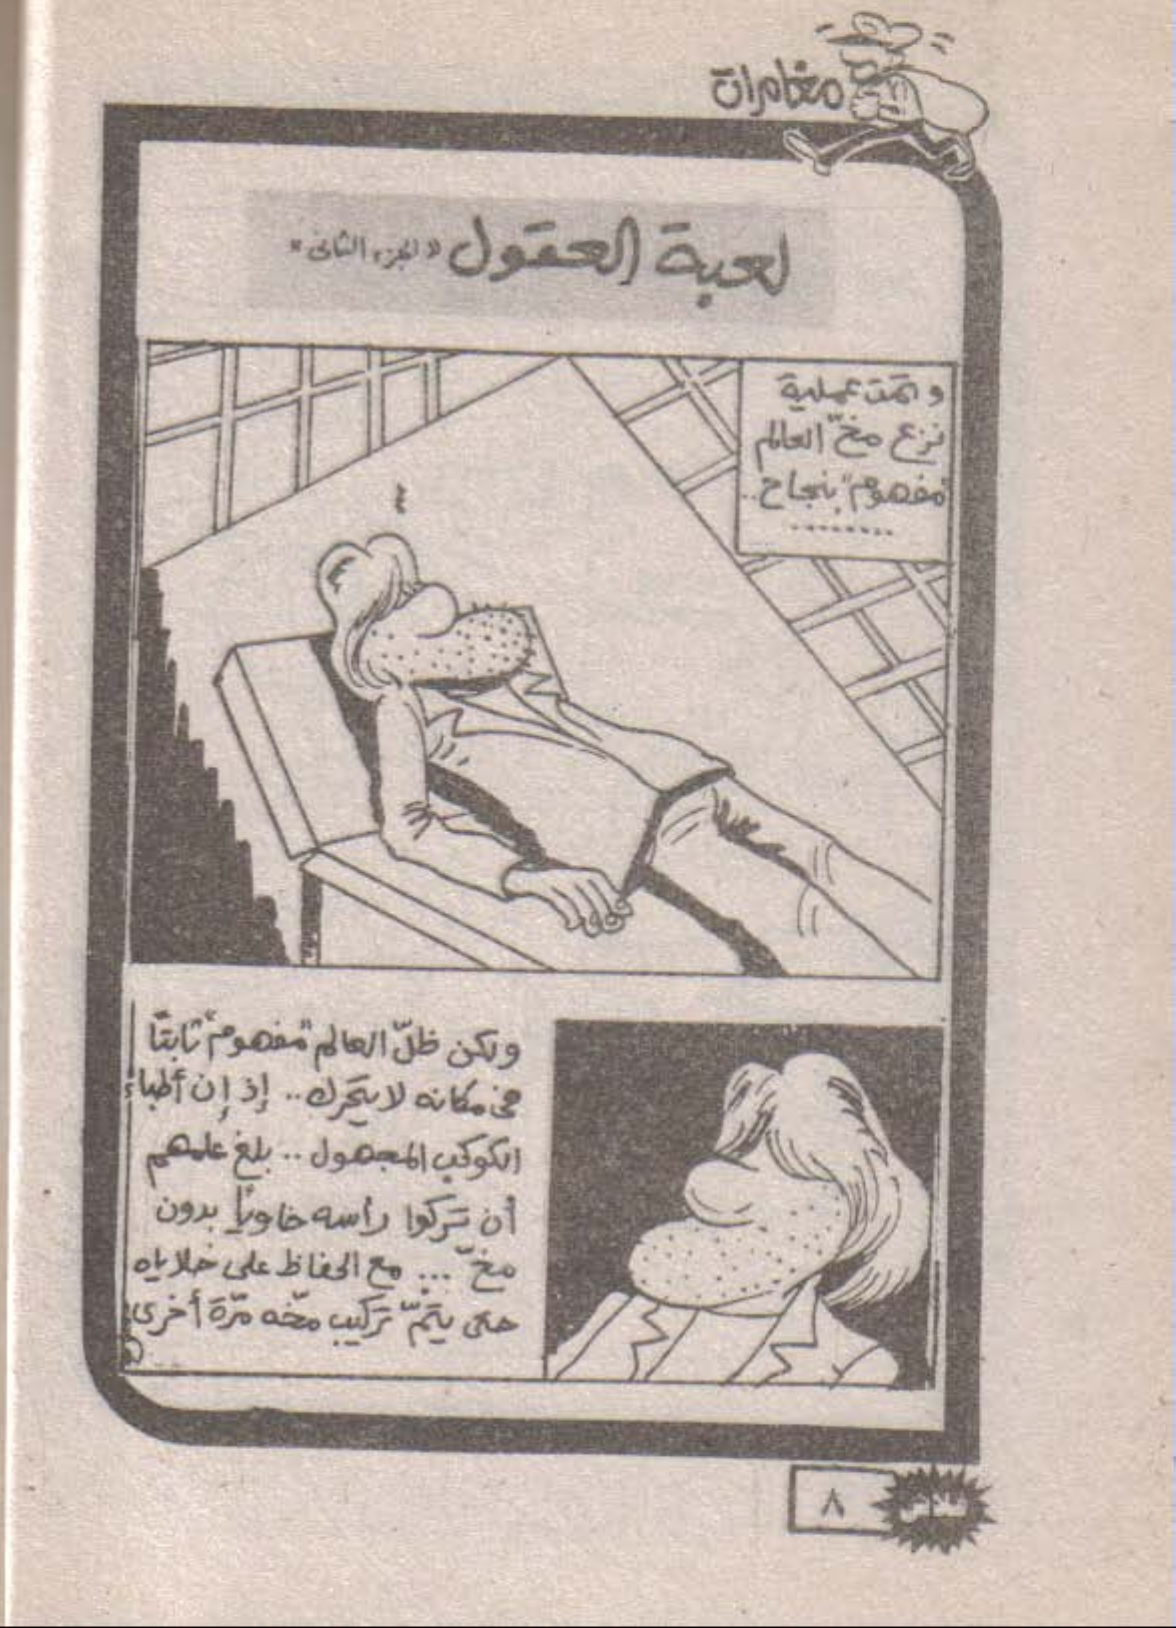 مغامرات
لعبة العقول «الجزء الثانى»
وتمت عملية
نزع مخّ العالم
"مفهوم" بنجاح..
........
ولكن ظلّ العالم "مفهوم" ثابتًا
فى مكانه لا يتحرك.. إذ إن أطباء
الكوكب المجهول.. بلغ علمهم
أن يتركوا رأسه خاويًا بدون
مخّ ... مع الحفاظ على خلاياه
حتى يتمّ تركيب مخّه مرّة أخرى
٨